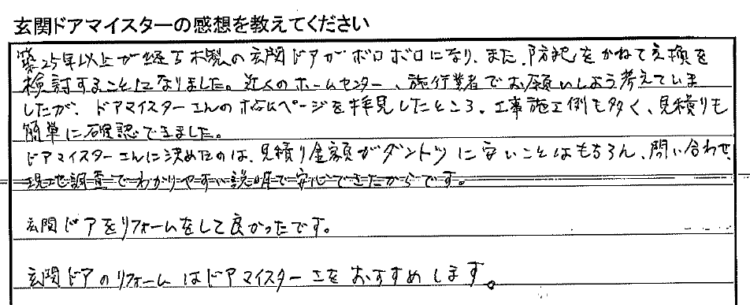 玄関ドアマイスターの感想を教えてください
築25年以上が経ち木製の玄関ドアがボロボロになり、また、防犯をかねて交換を
検討することになりました。近くのホームセンター、施行業者でお願いしよう考えていま
したが、ドアマイスターさんのホームページを拝見したところ、工事施工例も多く、見積りも
簡単に確認できました。
ドアマイスターさんに決めたのは、見積り金額がダントツに安いことはもちろん、問い合わせ、
現地調査でわかりやすい説明で安心できたからです。
玄関ドアをリフォームをして良かったです。
玄関ドアのリフォームはドアマイスターさをおすすめします。